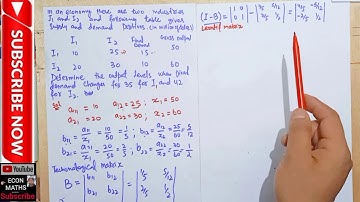 In an economy there are two industries
I₁ and I₂ and following table gives
supply and demand Position (in million dollars)
I₁ I₂ Final Demand Gross output
I₁ 10 25 15 50
I₂ 20 30 10 60
Determine the output levels when final
demand changes for 35 for I₁ and 42
for I₂.
Sol
a₁₁ = 10 a₁₂ = 25, x₁ = 50
a₂₁ = 20 a₂₂ = 30, x₂ = 60
b₁₁ = a₁₁/x₁ = 10/50 = 1/5 ; b₁₂ = a₁₂/x₂ = 25/60 = 5/12
b₂₁ = a₂₁/x₁ = 20/50 = 2/5 ; b₂₂ = a₂₂/x₂ = 30/60 = 1/2
Technological matrix
B = | b₁₁ b₁₂ | = | 1/5 5/12 |
| b₂₁ b₂₂ | | 2/5 1/2 |
(I-B) = | 1 0 | - | 1/5 5/12 | = | 4/5 -5/12 |
| 0 1 | | 2/5 1/2 | | -2/5 1/2 |
Leontief matrix
SUBSCRIBE
ECON
MATHS
Subscribe